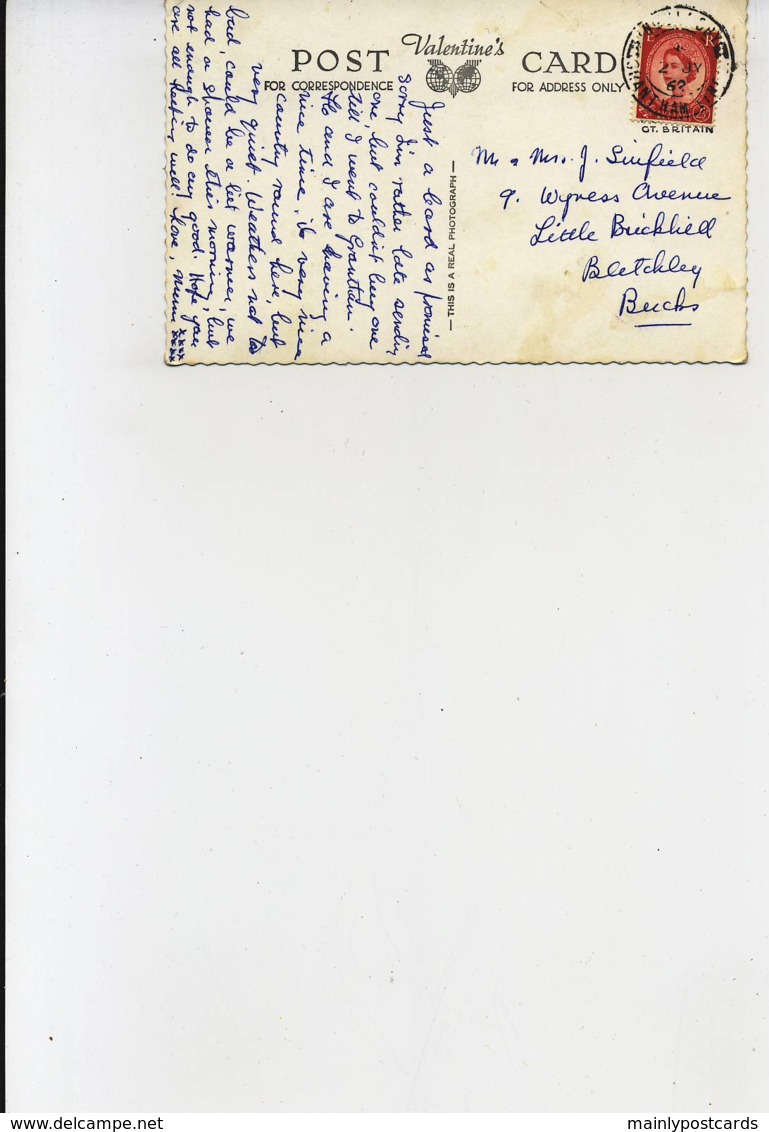 POST
Valentine's
CARD
FOR CORRESPONDENCE
FOR ADDRESS ONLY
GT. BRITAIN
Just a card as promised
sorry I'm rather late sending
one, but couldn't buy one
till I went to Grantham.
Flo and I are having a
nice time, its very nice
country round here, but
very quiet. Weathers not to
bad, could be a bit warmer, we
had a shower this morning, but
not enough to do any good. Hope you
are all keeping well! Love, Mum xxxx
xxxx
— THIS IS A REAL PHOTOGRAPH —
Mr & Mrs. J. Sinfield
9. Wyness Avenue
Little Brickhill
Bletchley
Bucks
mainlypostcards